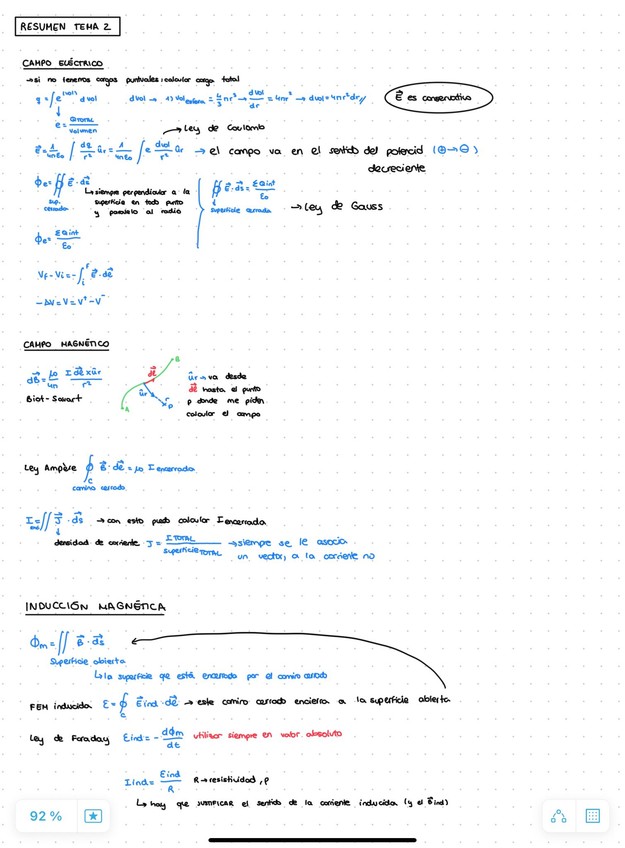 RESUMEN TEMA 2
CAMPO ELÉCTRICO
→ si no tenemos cargas puntuales: calcular carga total
q = ∫ ρ^(vol) dvol dvol → 1) Vol esfera = 4/3 πr³ → dvol/dr = 4πr² → dvol = 4πr² dr //
E⃗ es conservativo
ρ = Q TOTAL / Volumen
→ Ley de Coulomb
E⃗ = 1/4πε₀ ∫ dq/r² ûr = 1/4πε₀ ∫ ρ dvol/r² ûr → el campo va en el sentido del potencial (⊕→⊖)
decreciente
Φe = ∯ E⃗ · ds⃗
sup. cerrada
↳ siempre perpendicular a la
superficie en todo punto
y paralelo al radio
∯ E⃗ · ds⃗ = ΣQint / ε₀
superficie cerrada
→ Ley de Gauss
Φe = ΣQint / ε₀
Vf - Vi = - ∫ᵢᶠ E⃗ · dℓ⃗
-ΔV = V = V⁺ - V⁻
CAMPO MAGNÉTICO
dB⃗ = μ₀/4π I dℓ⃗ x ûr / r²
Biot-Savart
B
dℓ⃗
ûr
A
P
ûr → va desde
dℓ⃗ hasta el punto
p donde me piden
calcular el campo
Ley Ampère ∮ B⃗ · dℓ⃗ = μ₀ I encerrada
C
camino cerrado
I enc = ∬ J⃗ · ds⃗ → con esto puedo calcular I encerrada
densidad de corriente J = I TOTAL / superficie TOTAL → siempre se le asocia
un vector, a la corriente no
INDUCCIÓN MAGNÉTICA
Φm = ∬ B⃗ · ds⃗
Superficie abierta
↳ la superficie que está encerrada por el camino cerrado
FEM inducida ε = ∮ E⃗ind · dℓ⃗ → este camino cerrado encierra a la superficie abierta
C
Ley de Faraday εind = - dΦm/dt utilizar siempre en valor absoluto
Iind = εind / R R → resistividad, ρ
↳ hay que JUSTIFICAR el sentido de la corriente inducida (y el B⃗ ind)
92 %